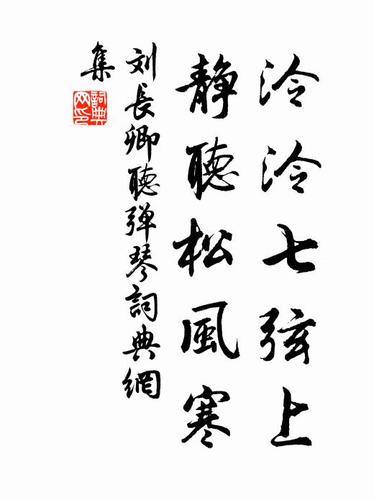 泠泠七弦上
静聽松風寒
刘長卿聽弹琴詞典網
集
詞典网